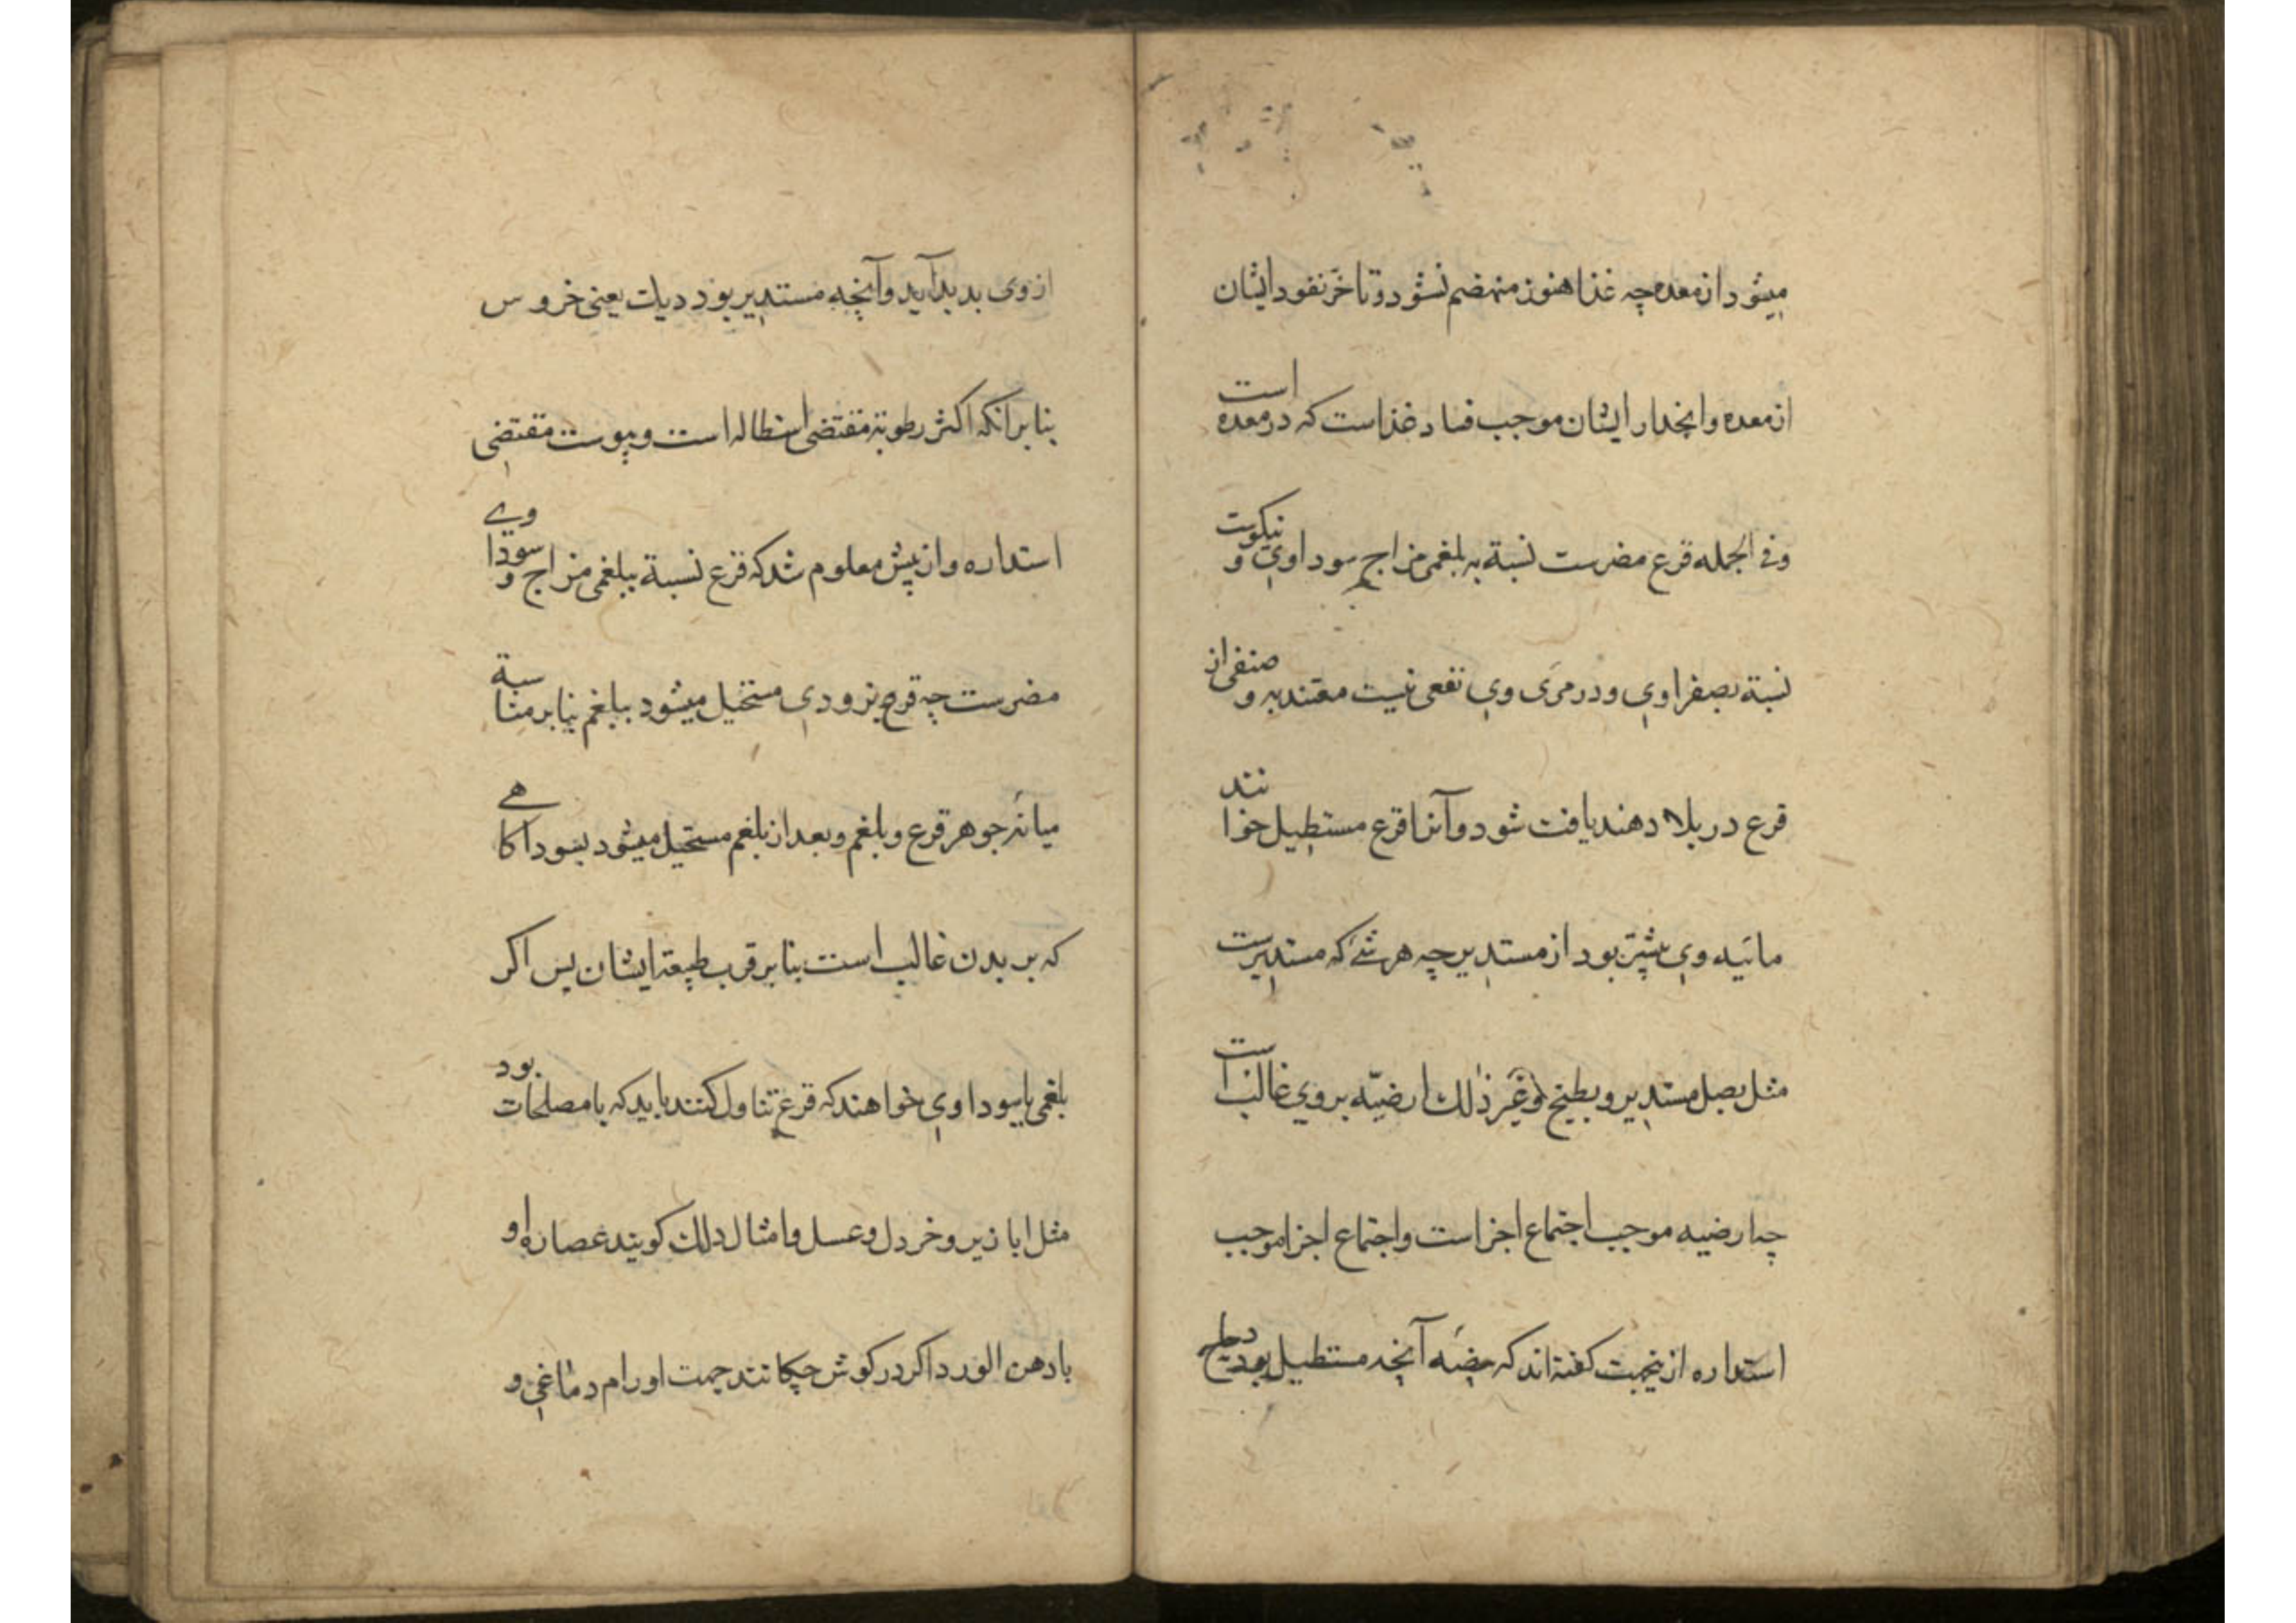 میشود از معده چه غذا هنوز منهضم نشود و تاخر نفود ایشان
از معده و انحدار ایشان موجب فساد غذاست که در معده است
و فی الجمله قرع مضرست نسبة به بلغمی مزاج سوداوی و نیکوست
نسبة بصفراوی و در مری وی نفعی نیست معتد به و صنفی از
قرع در بلاد هند یافت شود و آنرا قرع مستطیل خوانند
مائیه وی بیشتر بود از مستدیر چه هر شئ که مستدیرست
مثل بصل مستدیر و بطیخ و غیر ذلك ارضیّه بر وی غالب است
چه ارضیه موجب اجتماع اجزاست و اجتماع اجزا موجب
استداره ازینجهت کفته اند که بیضه آنچه مستطیل بود دجاج
از وی بدید آید و آنچه مستدیر بود دیك یعنی خروس
بنابر انکه اکثر رطوبة مقتضی استطاله است و یبوست مقتضی
استداره و از پیش معلوم شد که قرع نسبة ببلغمی مزاج و سوداوی
مضرست چه قرع بزودی مستحیل میشود ببلغم بنابر مناسبة
میانه جوهر قرع و بلغم و بعد از بلغم مستحیل میشود بسودا کاهی
که بر بدن غالب است بنابر قرب طبیعة ایشان پس اکر
بلغمی یا سوداوی خواهند که قرع تناول کنند باید که با مصلحات بود
مثل ابازیر و خردل و عسل و امثال ذلك کویند عصاره او
با دهن الورد اکر در کوش چکانند جهت اورام دماغی و